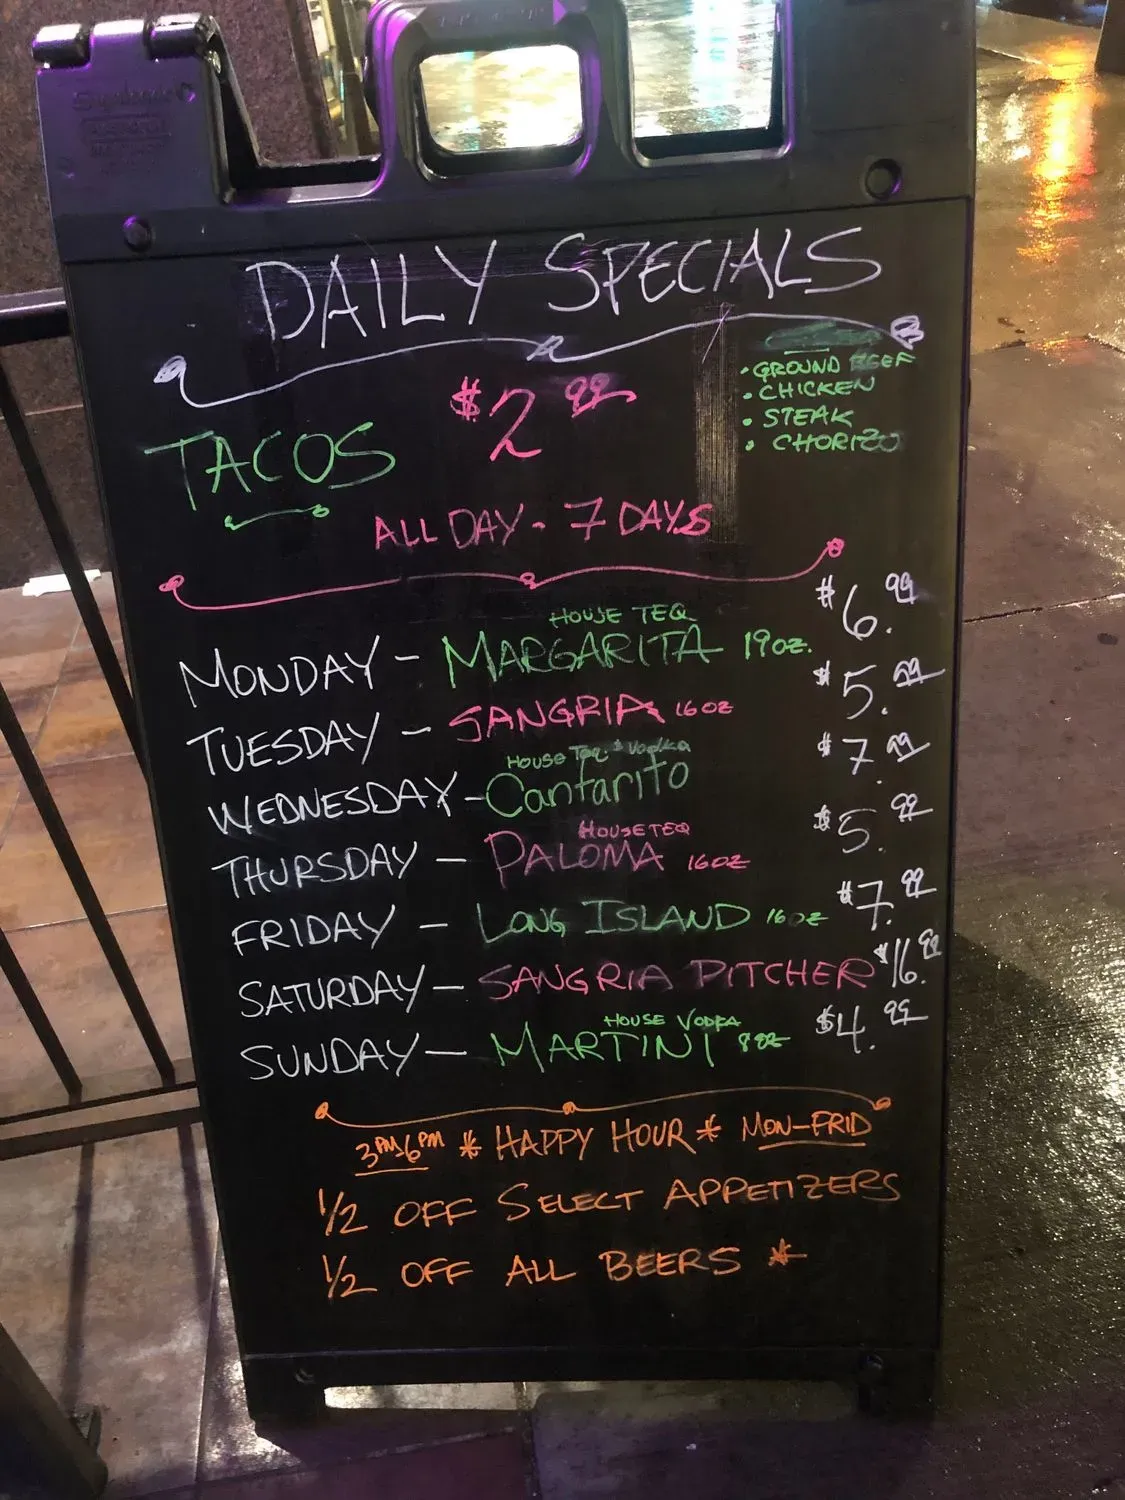 DAILY SPECIALS
TACOS $2.99
• GROUND BEEF
• CHICKEN
• STEAK
• CHORIZO
ALL DAY - 7 DAYS
HOUSE TEQ
MONDAY - MARGARITA 19 OZ. $6.99
TUESDAY - SANGRIA 16 OZ $5.99
HOUSE TEQ. & VODKA
WEDNESDAY - Cantarito $7.99
HOUSE TEQ
THURSDAY - PALOMA 16 OZ $5.99
FRIDAY - LONG ISLAND 16 OZ $7.99
SATURDAY - SANGRIA PITCHER $16.99
HOUSE VODKA
SUNDAY - MARTINI 8 OZ $4.99
3PM-6PM * HAPPY HOUR * MON-FRID
1/2 OFF SELECT APPETIZERS
1/2 OFF ALL BEERS *